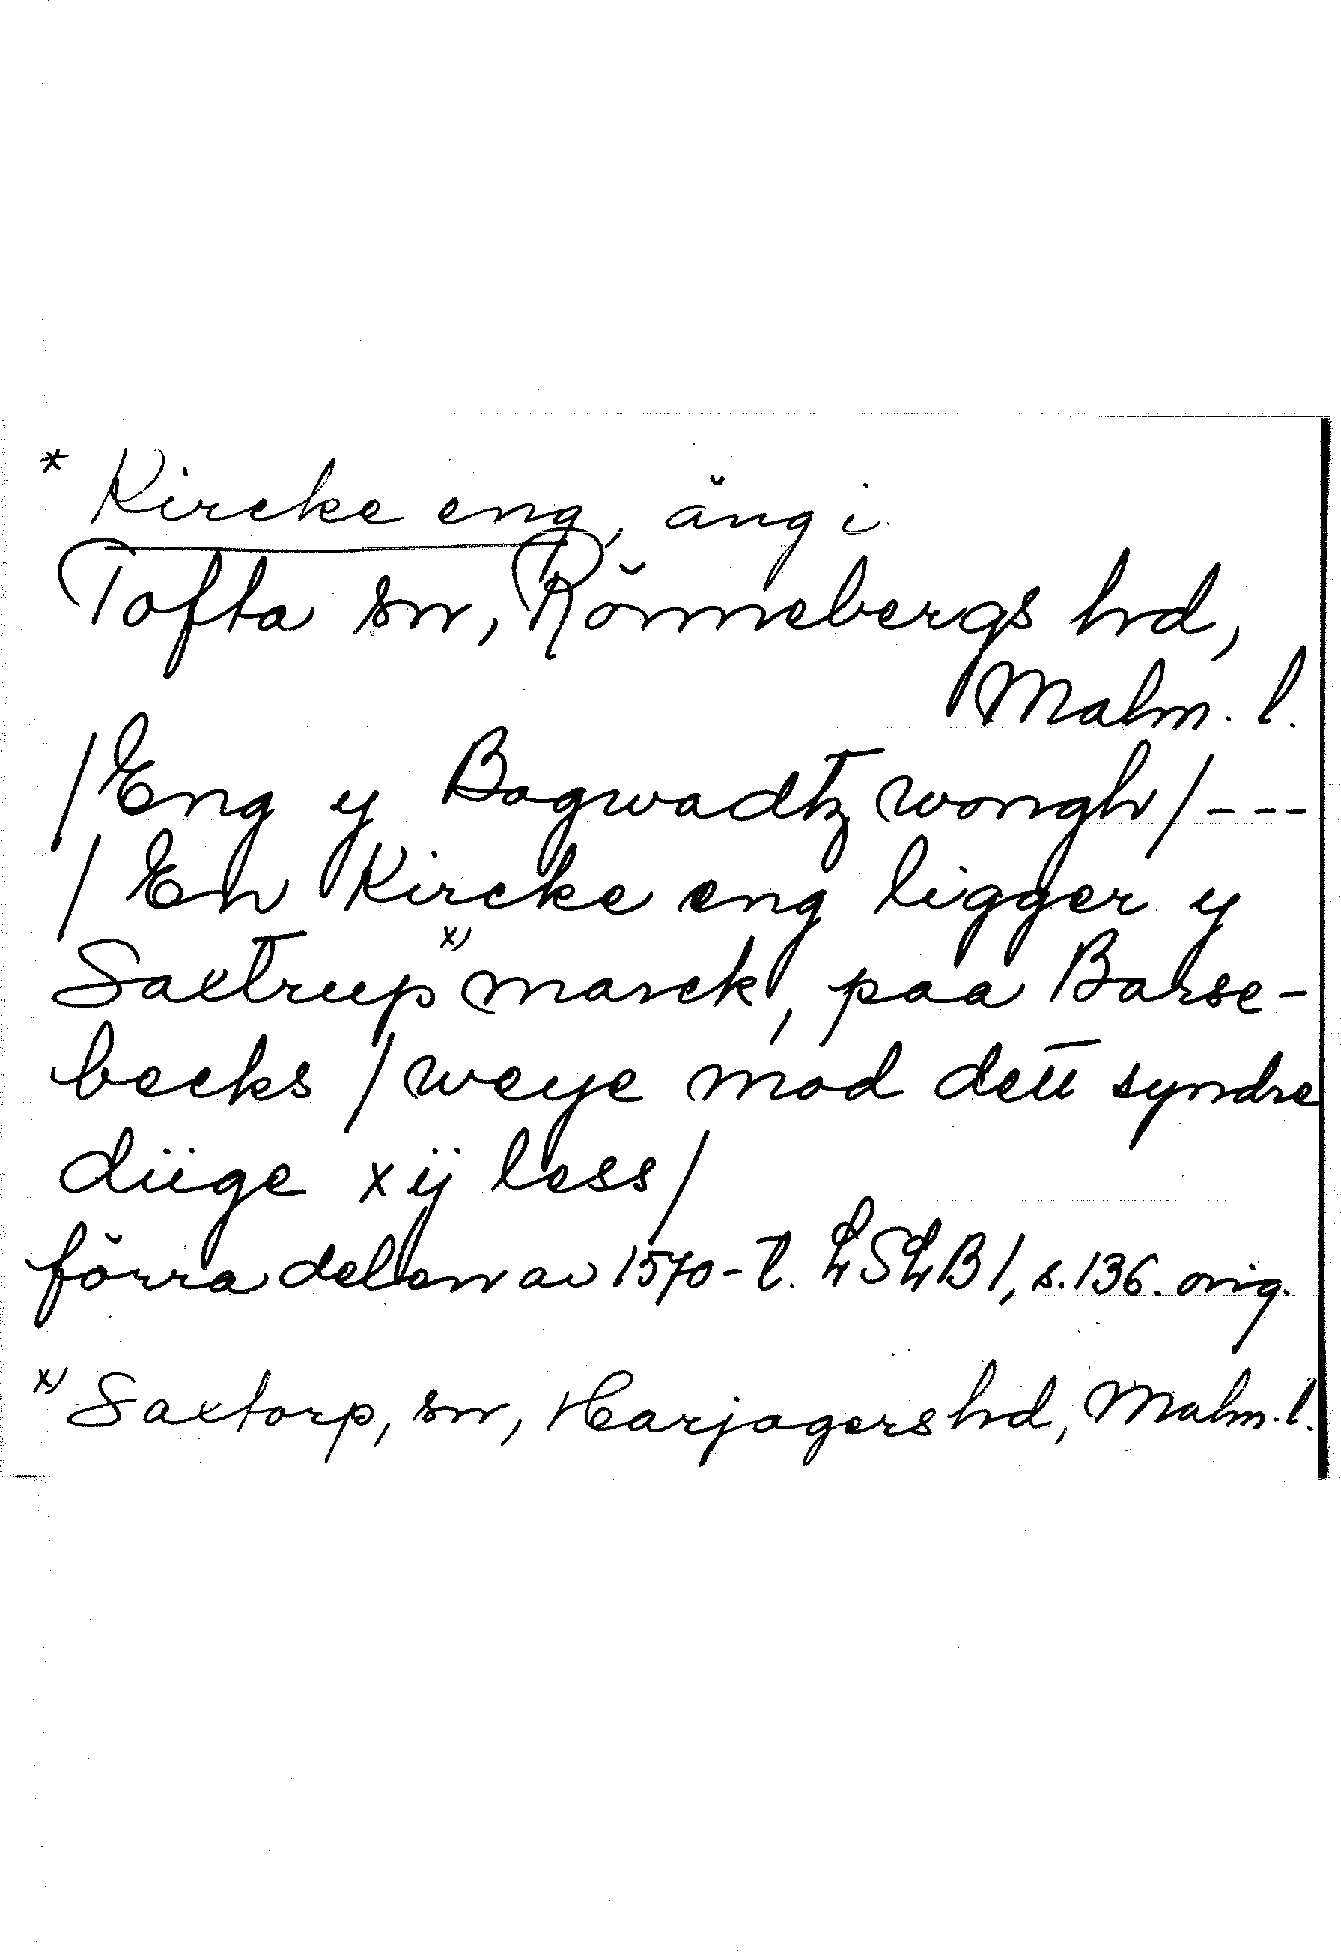 * Kircke eng, äng i
Tofta sn, Rönnebergs hd,
Malm. l.
/Eng y Bogwadtz wongh/---
/En Kircke eng ligger y
Saxtrup x) marck, paa Barse-
becks / weye mod dett syndre
diige xij less/
förra delen av 1570-t. LSLB 1, s. 136. orig.
x) Saxtorp, sn, Harjagers hd, Malm. l.